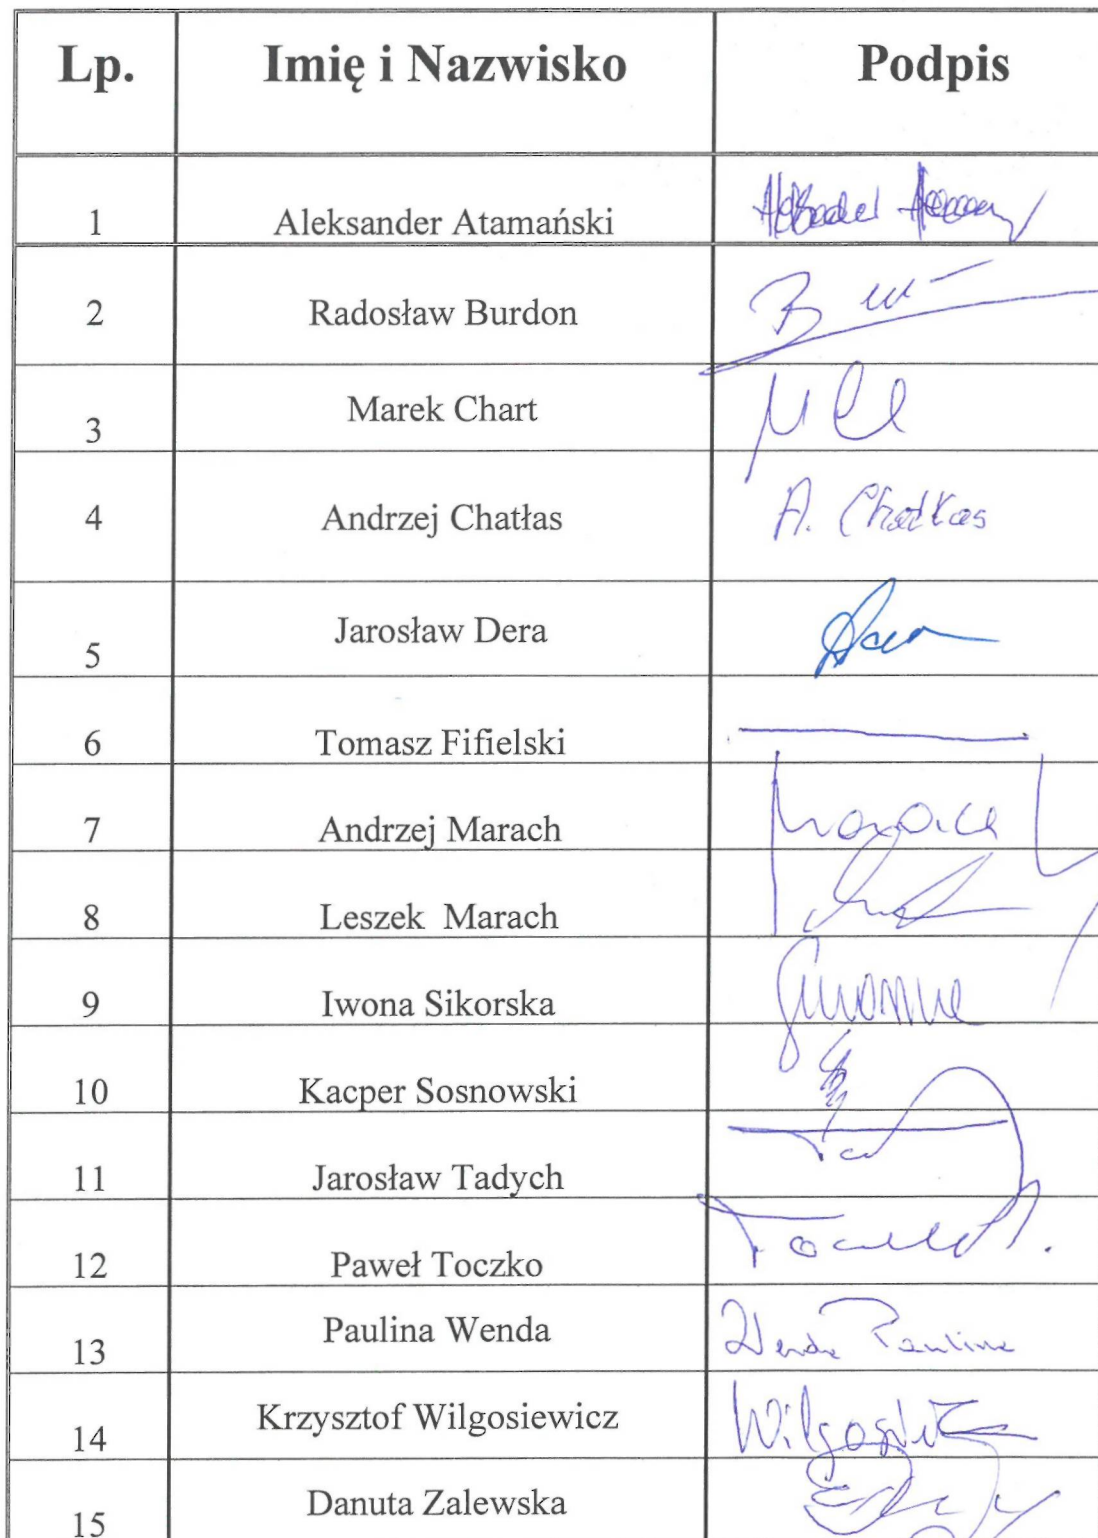 Lp. Imię i Nazwisko Podpis
1 Aleksander Atamański
2 Radosław Burdon
3 Marek Chart
4 Andrzej Chatłas A. Chatłas
5 Jarosław Dera
6 Tomasz Fifielski
7 Andrzej Marach
8 Leszek Marach
9 Iwona Sikorska
10 Kacper Sosnowski
11 Jarosław Tadych
12 Paweł Toczko
13 Paulina Wenda Wenda Paulina
14 Krzysztof Wilgosiewicz
15 Danuta Zalewska